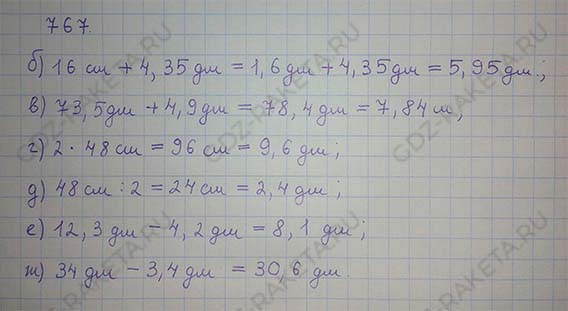 767.
б) 16 см + 4,35 дм = 1,6 дм + 4,35 дм = 5,95 дм;
в) 73,5 дм + 4,9 дм = 78,4 дм = 7,84 м;
г) 2 · 48 см = 96 см = 9,6 дм;
д) 48 см : 2 = 24 см = 2,4 дм;
е) 12,3 дм - 4,2 дм = 8,1 дм;
ж) 34 дм - 3,4 дм = 30,6 дм.
GDZ-RAKETA.RU
GDZ-RAKETA.RU
GDZ-RAKETA.RU
GDZ-RAKETA.RU